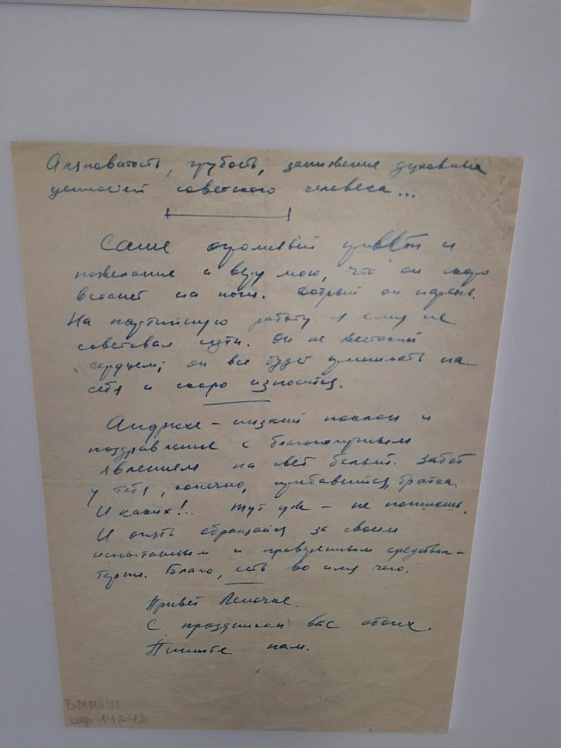 Аляповатость, грубость, занижение духовных
ценностей советского человека...
Саше огромный привет и
пожелание и веру мою, что он скоро
встанет на ноги. Добрый он парень.
На партийную работу я ему не
советовал идти. Он не жестокий
сердцем; он все будет принимать на
себя и скоро износится.
Андрюхе – низкий поклон и
поздравление с благополучным
явлением на свет белый. Забот
у тебя, конечно, прибавится, братка.
И каких!.. Тут уж – не попишешь.
И опять обращайся за своим
испытанным и проверенным средством –
терпи. Благо, есть во имя чего.
Привет Леночке.
С праздником вас обоих.
Пишите нам.
оф 14242